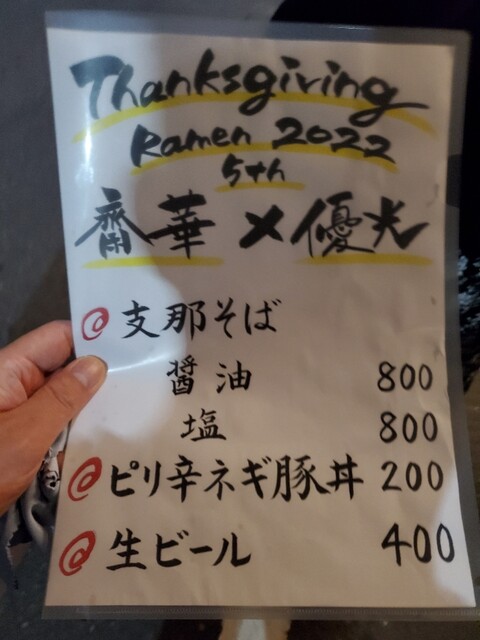 Thanksgiving
Ramen 2022
5th
齋華×優光
@支那そば
醤油 800
塩 800
@ピリ辛ネギ豚丼 200
@生ビール 400